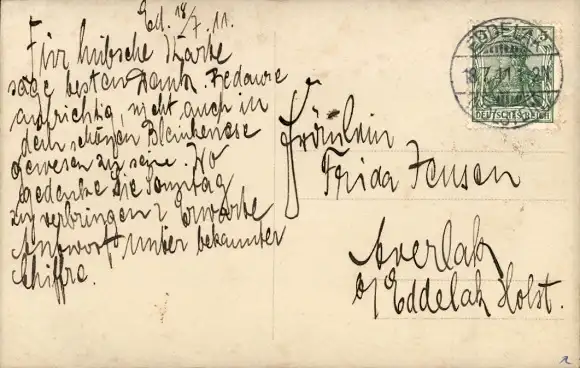 Ed. 18/7. 11.
Für hübsche Karte
sage besten Dank. Bedaure
aufrichtig, nicht auch in
dem schönen Blankenese
gewesen zu sein. Wo
gedenke Sie Sonntag
zu verbringen? Erwarte
Antwort unter bekannter
Chiffre.
Fräulein
Frida Jensen
Averlak
b/ Eddelak Holst.
EDDELAK
18.7.11
DEUTSCHES REICH